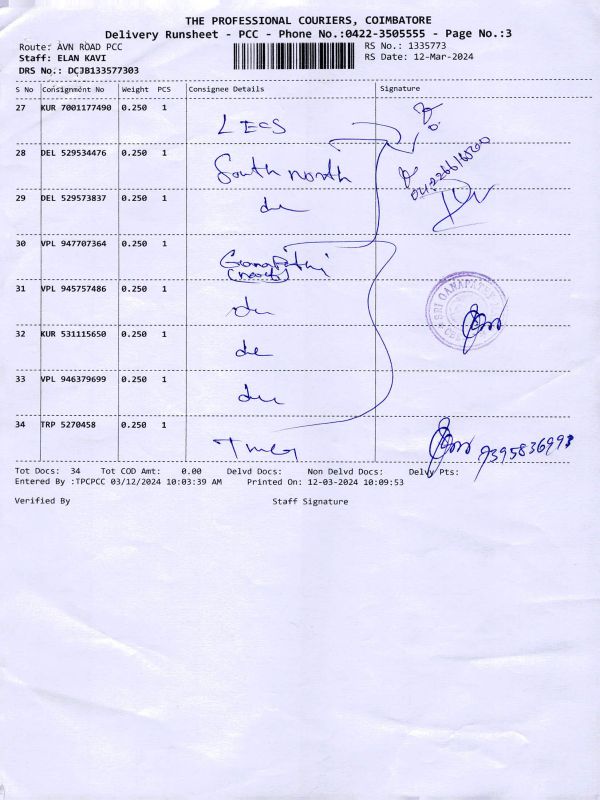 THE PROFESSIONAL COURIERS, COIMBATORE
Delivery Runsheet - PCC - Phone No.:0422-3505555 - Page No.:3
Route: AVN ROAD PCC RS No.: 1335773
Staff: ELAN KAVI RS Date: 12-Mar-2024
DRS No.: DCJB133577303
S No Consignment No Weight PCS Consignee Details Signature
27 KUR 7001177490 0.250 1
28 DEL 529534476 0.250 1 South north
29 DEL 529573837 0.250 1 do
30 VPL 947707364 0.250 1
31 VPL 945757486 0.250 1 do
32 KUR 531115650 0.250 1 do
33 VPL 946379699 0.250 1 do
34 TRP 5270458 0.250 1
Tot Docs: 34 Tot COD Amt: 0.00 Delvd Docs: Non Delvd Docs: Delvy Pts:
Entered By :TPCPCC 03/12/2024 10:03:39 AM Printed On: 12-03-2024 10:09:53
Verified By Staff Signature